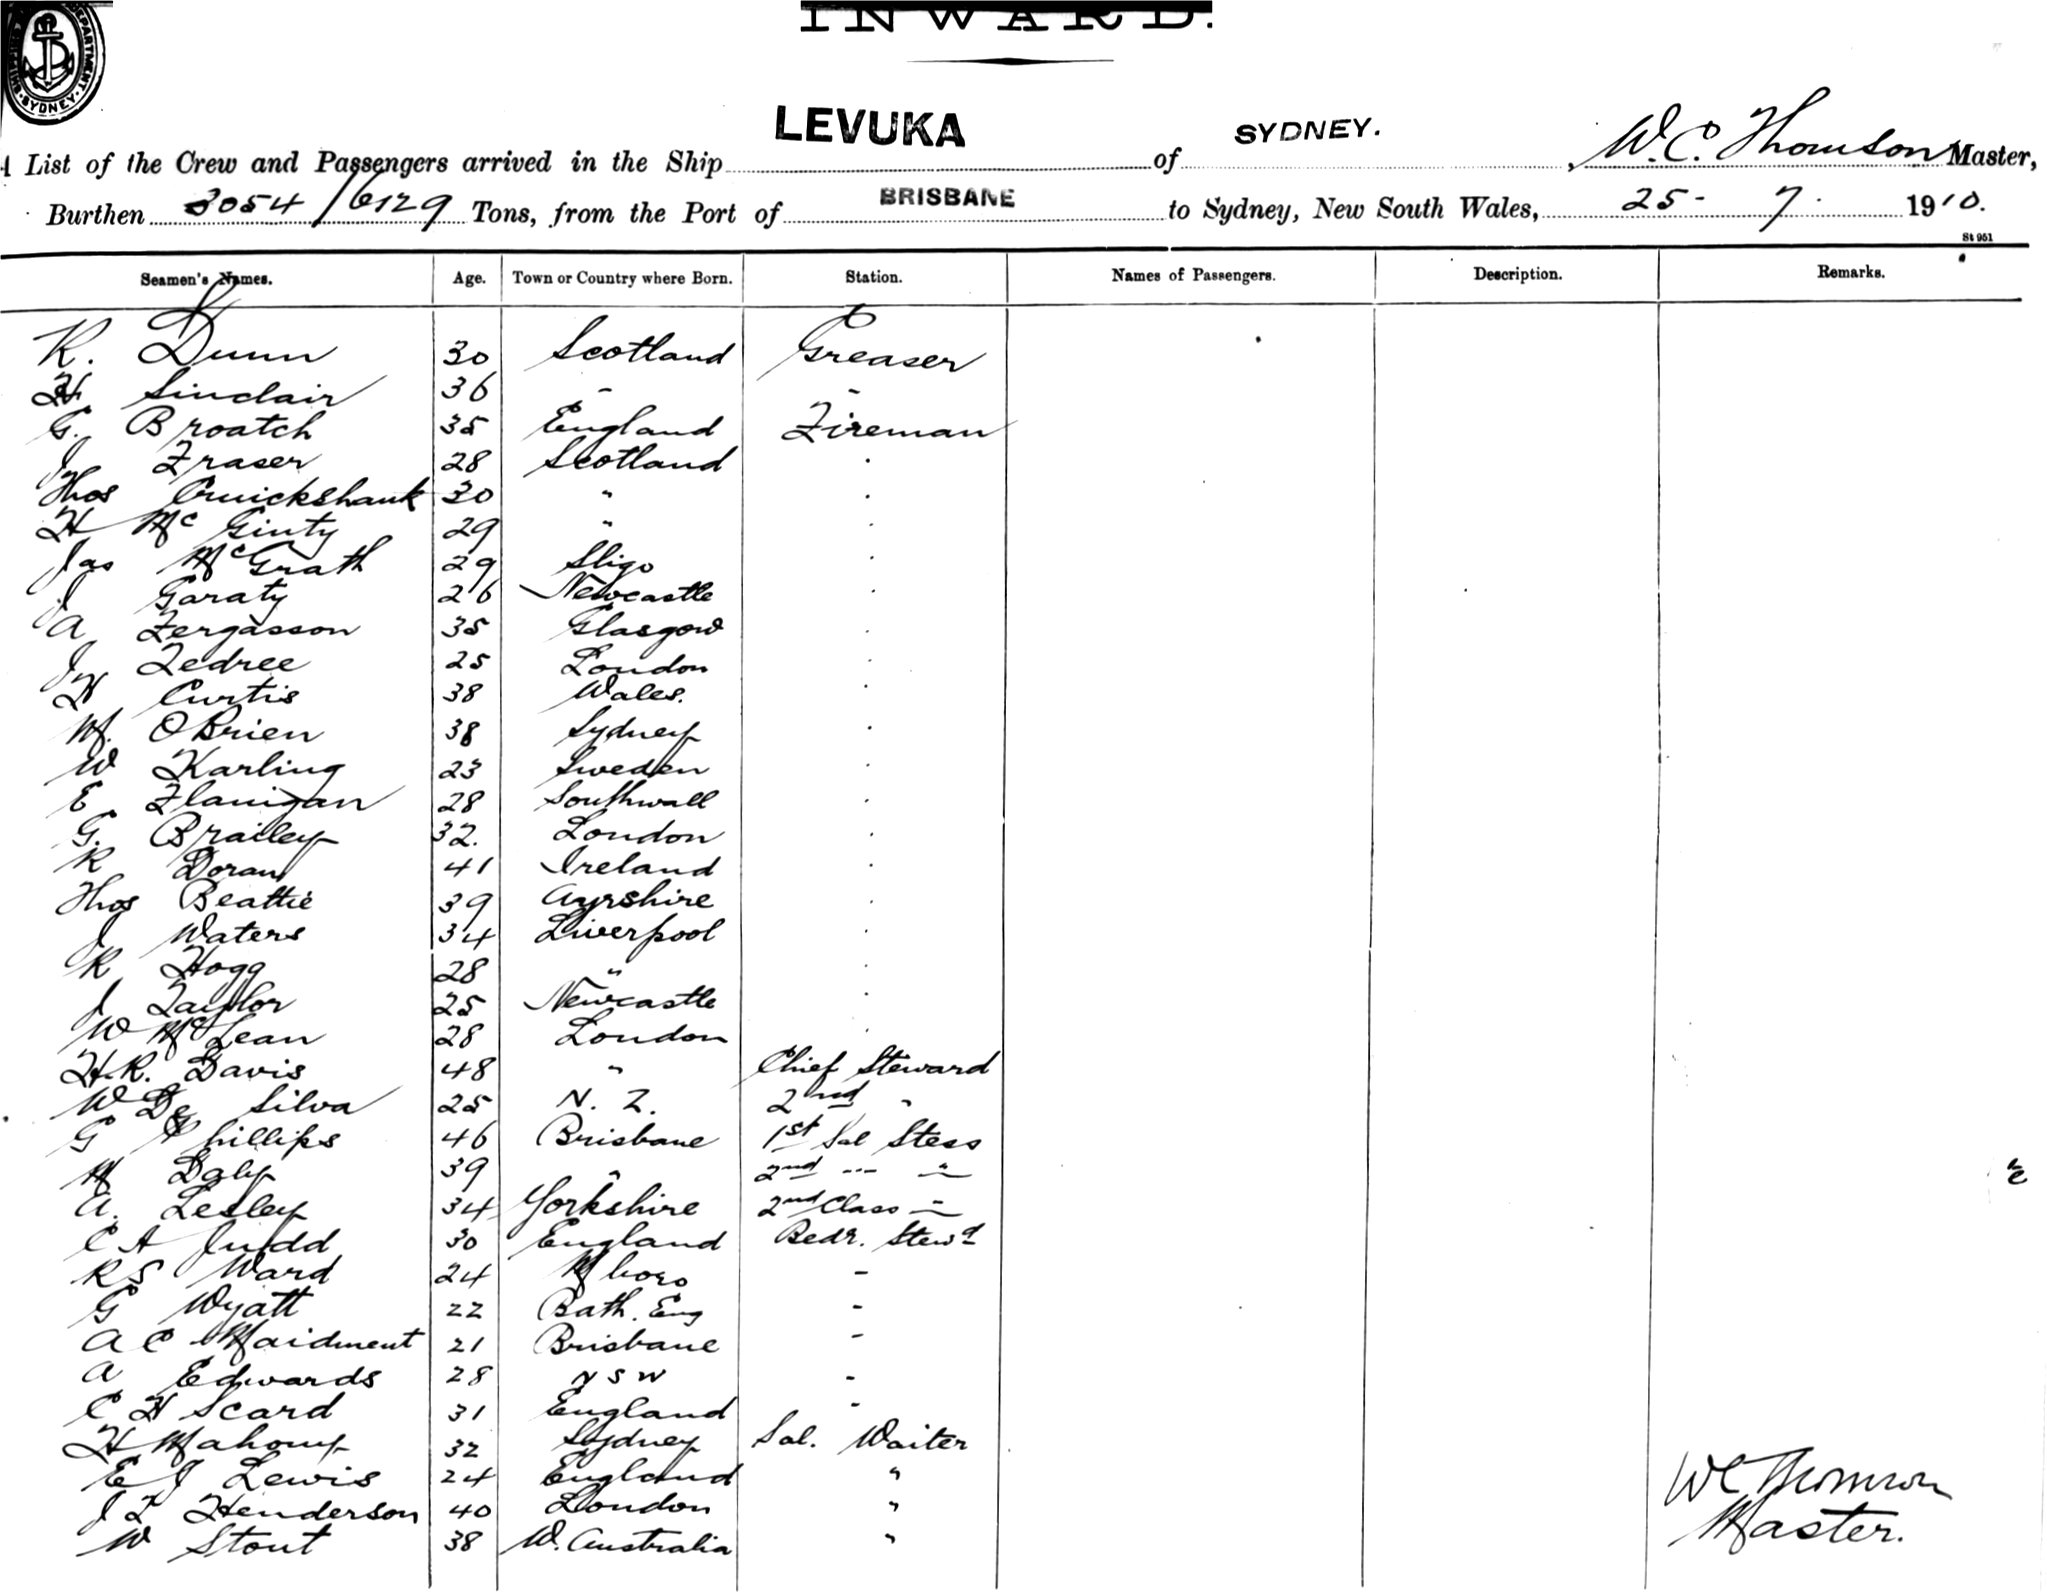 SHIPPING DEPARTMENT SYDNEY
INWARD.
A List of the Crew and Passengers arrived in the Ship LEVUKA of SYDNEY. , W. C. Thomson Master,
Burthen 3054/6129 Tons, from the Port of BRISBANE to Sydney, New South Wales, 25 - 7. 1910.
St 951
Seamen's Names. Age. Town or Country where Born. Station. Names of Passengers. Description. Remarks.
R. Dunn 30 Scotland Greaser
H. Sinclair 36 " "
G. Broatch 35 England Fireman
J Fraser 28 Scotland "
Thos Cruickshank 30 " "
H McGinty 29 " "
Jas McGrath 29 Sligo "
J Garaty 26 Newcastle "
A Fergasson 35 Glasgow "
J Fedree 25 London "
H Curtis 38 Wales. "
M. OBrien 38 Sydney "
W Karling 23 Sweden "
E Flanigan 28 Southwall "
G. Brailey 32. London "
R Doran 41 Ireland "
Thos Beattie 39 Ayrshire "
J Waters 34 Liverpool "
R Hogg 28 " "
J Taylor 25 Newcastle "
W McLean 28 London "
H.R. Davis 48 " Chief Steward
W De Silva 25 N. Z. 2nd "
G Phillips 46 Brisbane 1st Sal Stess
M Daly 39 " 2nd " "
A. Lesley 34 Yorkshire 2nd Class "
C A Judd 30 England Bedr. Stewd
R S Ward 24 M boro "
G Wyatt 22 Bath. Eng "
A C Maidment 21 Brisbane "
A Edwards 28 NSW "
C H Scard 31 England "
H Mahony 32 Sydney Sal. Waiter
E J Lewis 24 England "
J F Henderson 40 London "
W Stout 38 W. Australia "
WC Thomson
Master.